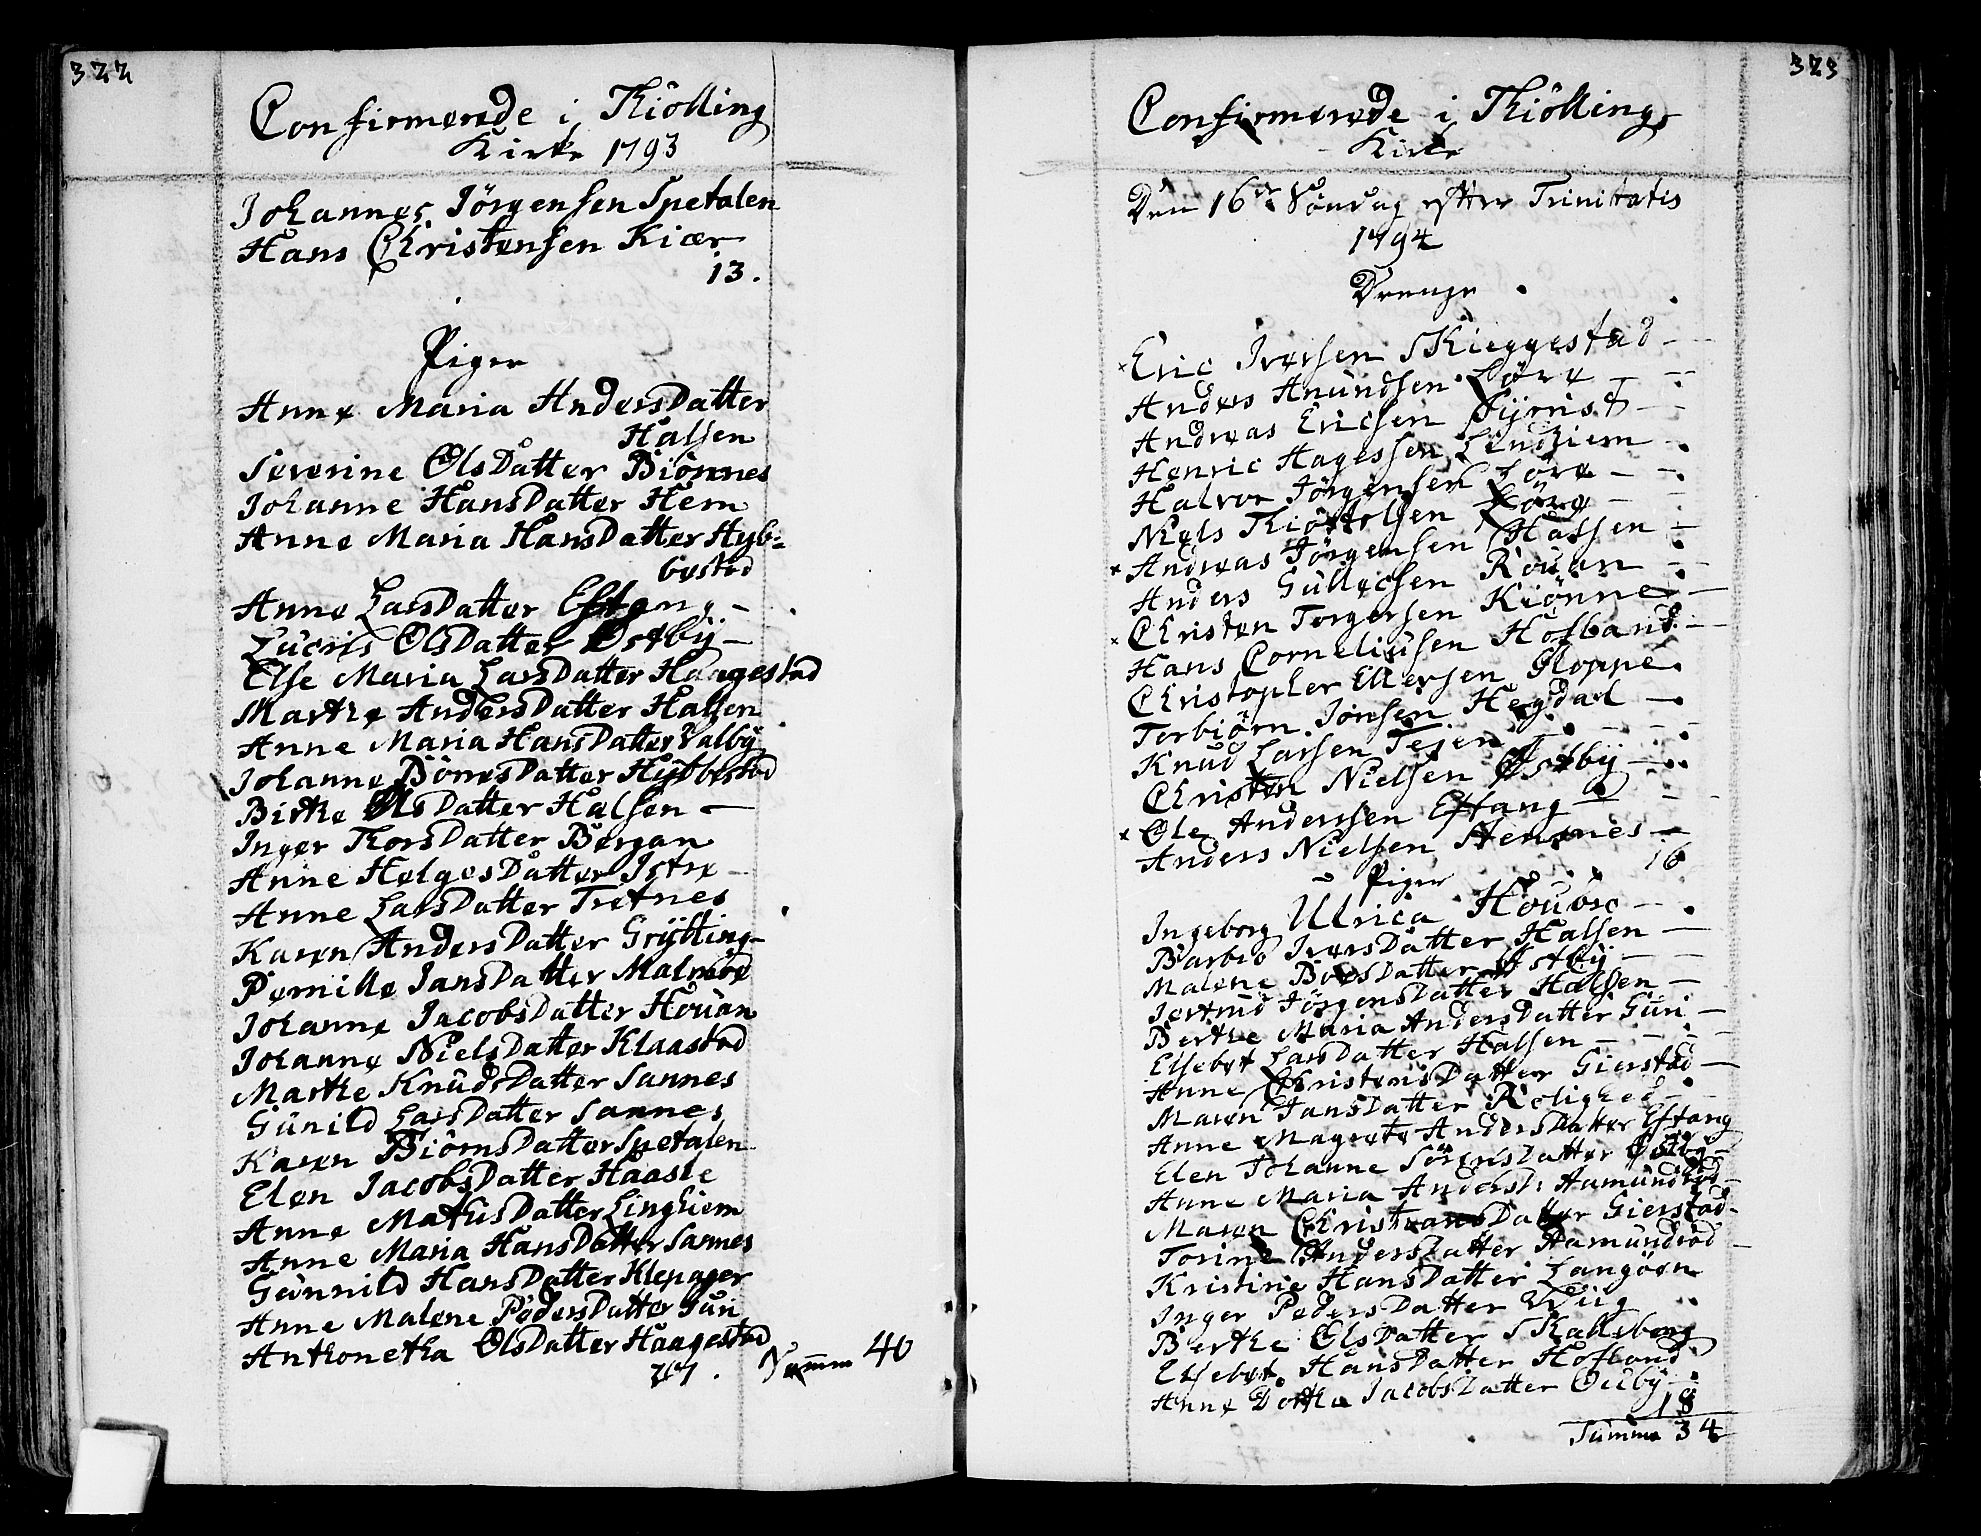 322
Confirmerede i Thiölling
Kirke 1793
Johannes Jörgensen Spetalen
Hans Christensen Kiær
13.
Piger
Anne Maria AndersDatter
Halsen
Severine OlsDatter Biönnes
Johanne HansDatter Hem
Anne Maria HansDatter Hyb=
bestad
Anne LarsDatter Eftang
Lucris OlsDatter Østbÿ
Else Maria LarsDatter Haagestad
Marthe AndersDatter Halsen
Anne Maria HansDatter Valbÿ
Johanne BönesDatter Hÿbbestad
Birthe OlsDatter Halsen
Inger ThorsDatter Bergan
Anne HelgesDatter Istre
Anne LarsDatter Tretnes
Karen AndersDatter Grÿtting
Pernille JansDatter Malmöe
Johanne JacobsDatter Houan
Johanne NielsDatter Klaastad
Marthe KnudsDatter Sannes
Günild LarsDatter Sannes
Karen BiörnsDatter Spetalen
Elen JacobsDatter Haasle
Anne MatiisDatter Linghiem
Anne Maria HansDatter Sannes
Gunnild HansDatter Klepager
Anne Malene PedersDatter Guri
Anthonetha OlsDatter Haagestad
27. Summ 40
323
Confirmerede i Thiölling
Kirke
Den 16de Söndag efter Trinitatis
1794
Drenge
× Eric Iversen Skieggestad
Anders Anundsen Löve
Andreas Ericsen Fÿrrist
Henric Hagessen Lindhiem
Halvor Jörgensen Löve
Niels Thiöstelsen Löve
× Andreas Jörgensen Halsen
Anders Gullicsen Rouan
× Christen Torgersen Kiönne
Hans Corneliusen Hofland
Christopher Ellefsen Gloppe
Torbiörn Jonsen Hegdal
Knud Larsen Tejen
Christen Nielsen Østbÿ
× Ole Andersen Eftang
Anders Nielsen Hemsnes
16
Piger
Ingeborg Ulrica Houbro
Barbro IversDatter Halsen
Malene BoesDatter Østbÿ
Jertrud JörgensDatter Halsen
Berthe Maria AndersDatter Guri
Elsebet LarsDatter Halsen
Anne ChristensDatter Gierstad
Maren JansDatter Rolighed
Anne Magrete AndersDatter Eftang
Elen Johanne SörensDatter Østbÿ
Anne Maria AndersD: Aamundröd
Maren ChristensDatter Gierstad
Torine AndersDatter Aamundröd
Kristine HansDatter Langöen
Inger PedersDatter Wiig
Berthe OlsDatter Skallsberg
Elsebet HansDatter Hofland
Anne Dorthe JacobsDatter Oulbÿ
18
Summa 34